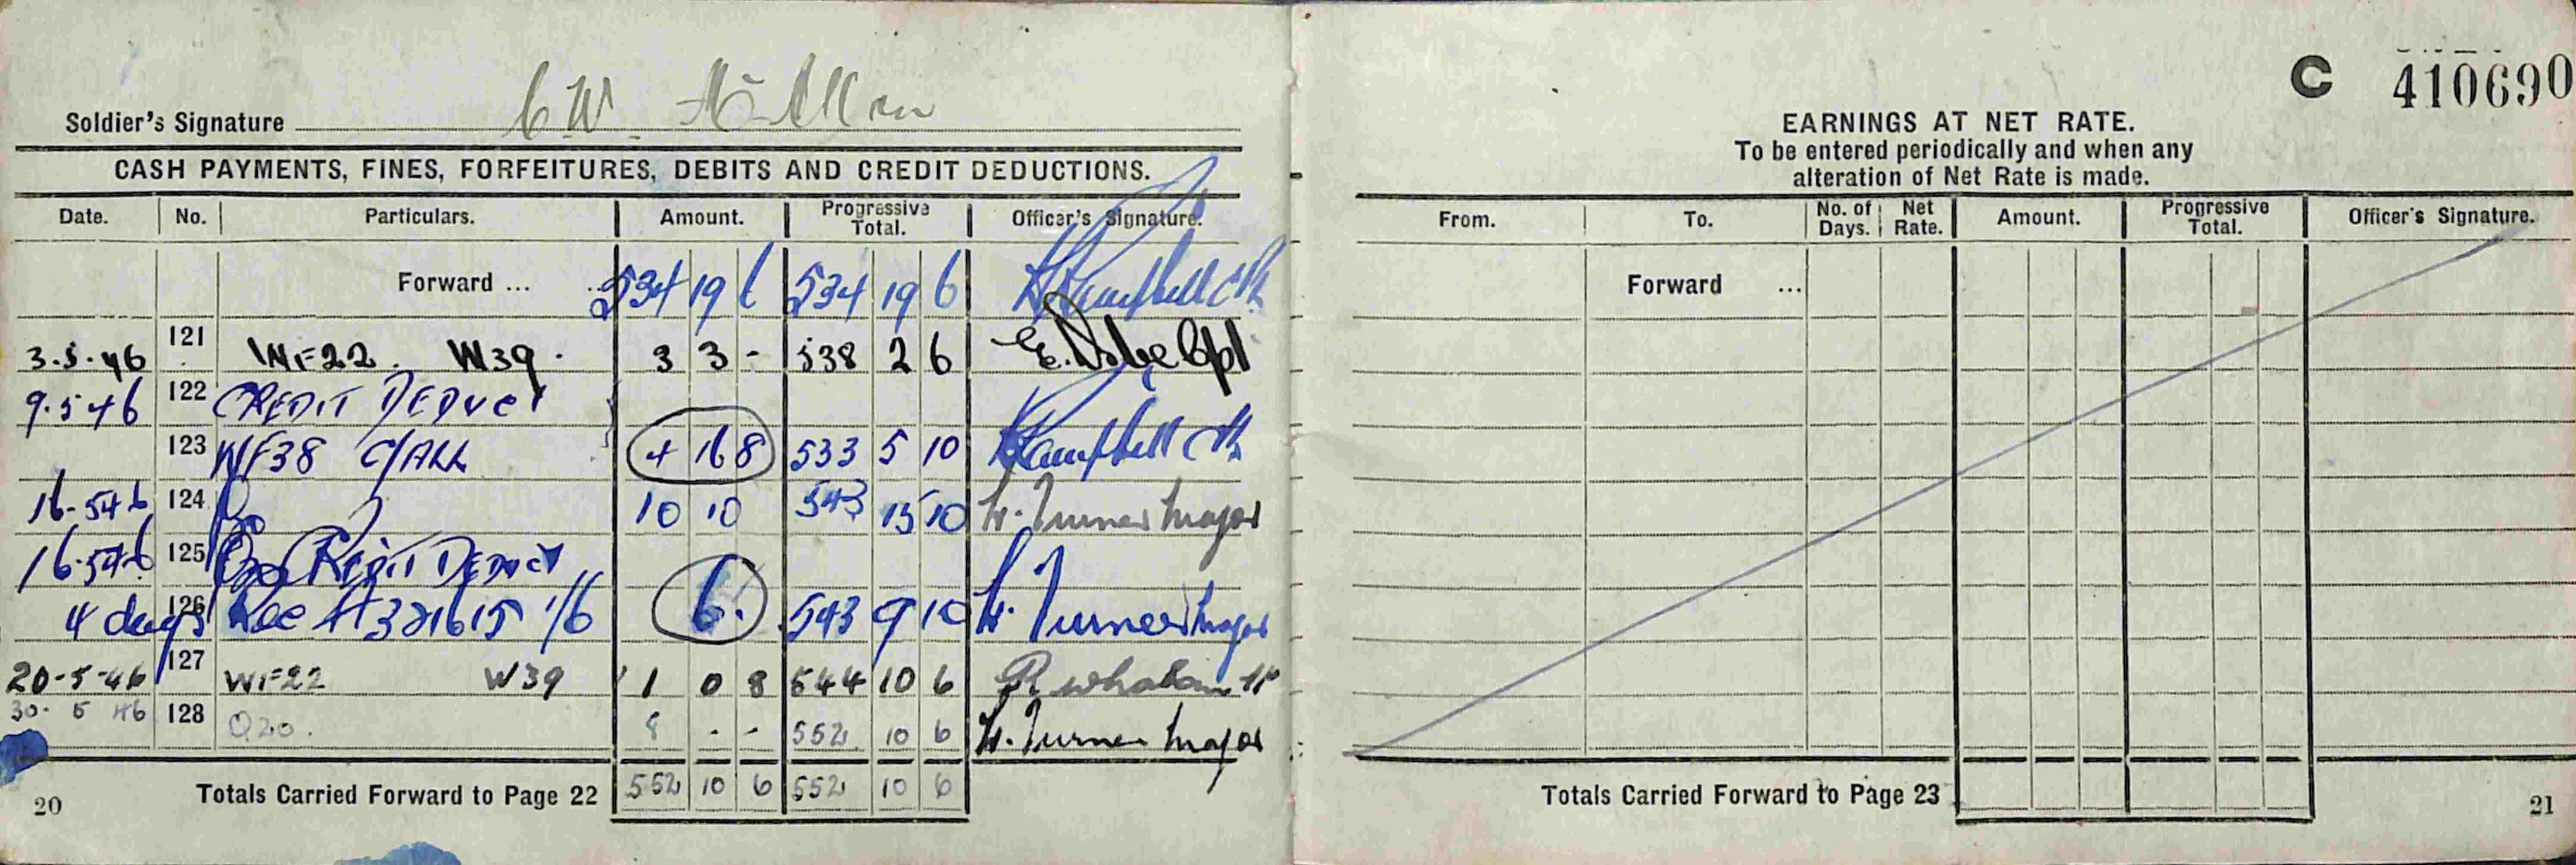 C 410690
Soldier's Signature C W
CASH PAYMENTS, FINES, FORFEITURES, DEBITS AND CREDIT DEDUCTIONS.
Date. No. Particulars. Amount. Progressive Total. Officer's Signature.
Forward ... 534 19 6 534 19 6 Campbell
3.5.46 121 WF22. W39. 3 3 - 538 2 6
9.5.46 122 CREDIT DEDUCT
123 WF38 4 16 8 533 5 10 Campbell
16.5.46 124 10 10 543 15 10 H. Turner Major
16.5.46 125 CREDIT DEDUCT
4 days 126 Rec A321615 1/6 6. 543 9 10 H. Turner Major
20-5-46 127 WF22 W39 1 0 8 544 10 6
30. 5 46 128 Q20. 8 - - 552 10 6 H. Turner Major
Totals Carried Forward to Page 22 552 10 6 552 10 6
20
EARNINGS AT NET RATE.
To be entered periodically and when any
alteration of Net Rate is made.
From. To. No. of Days. Net Rate. Amount. Progressive Total. Officer's Signature.
Forward ...
Totals Carried Forward to Page 23
21